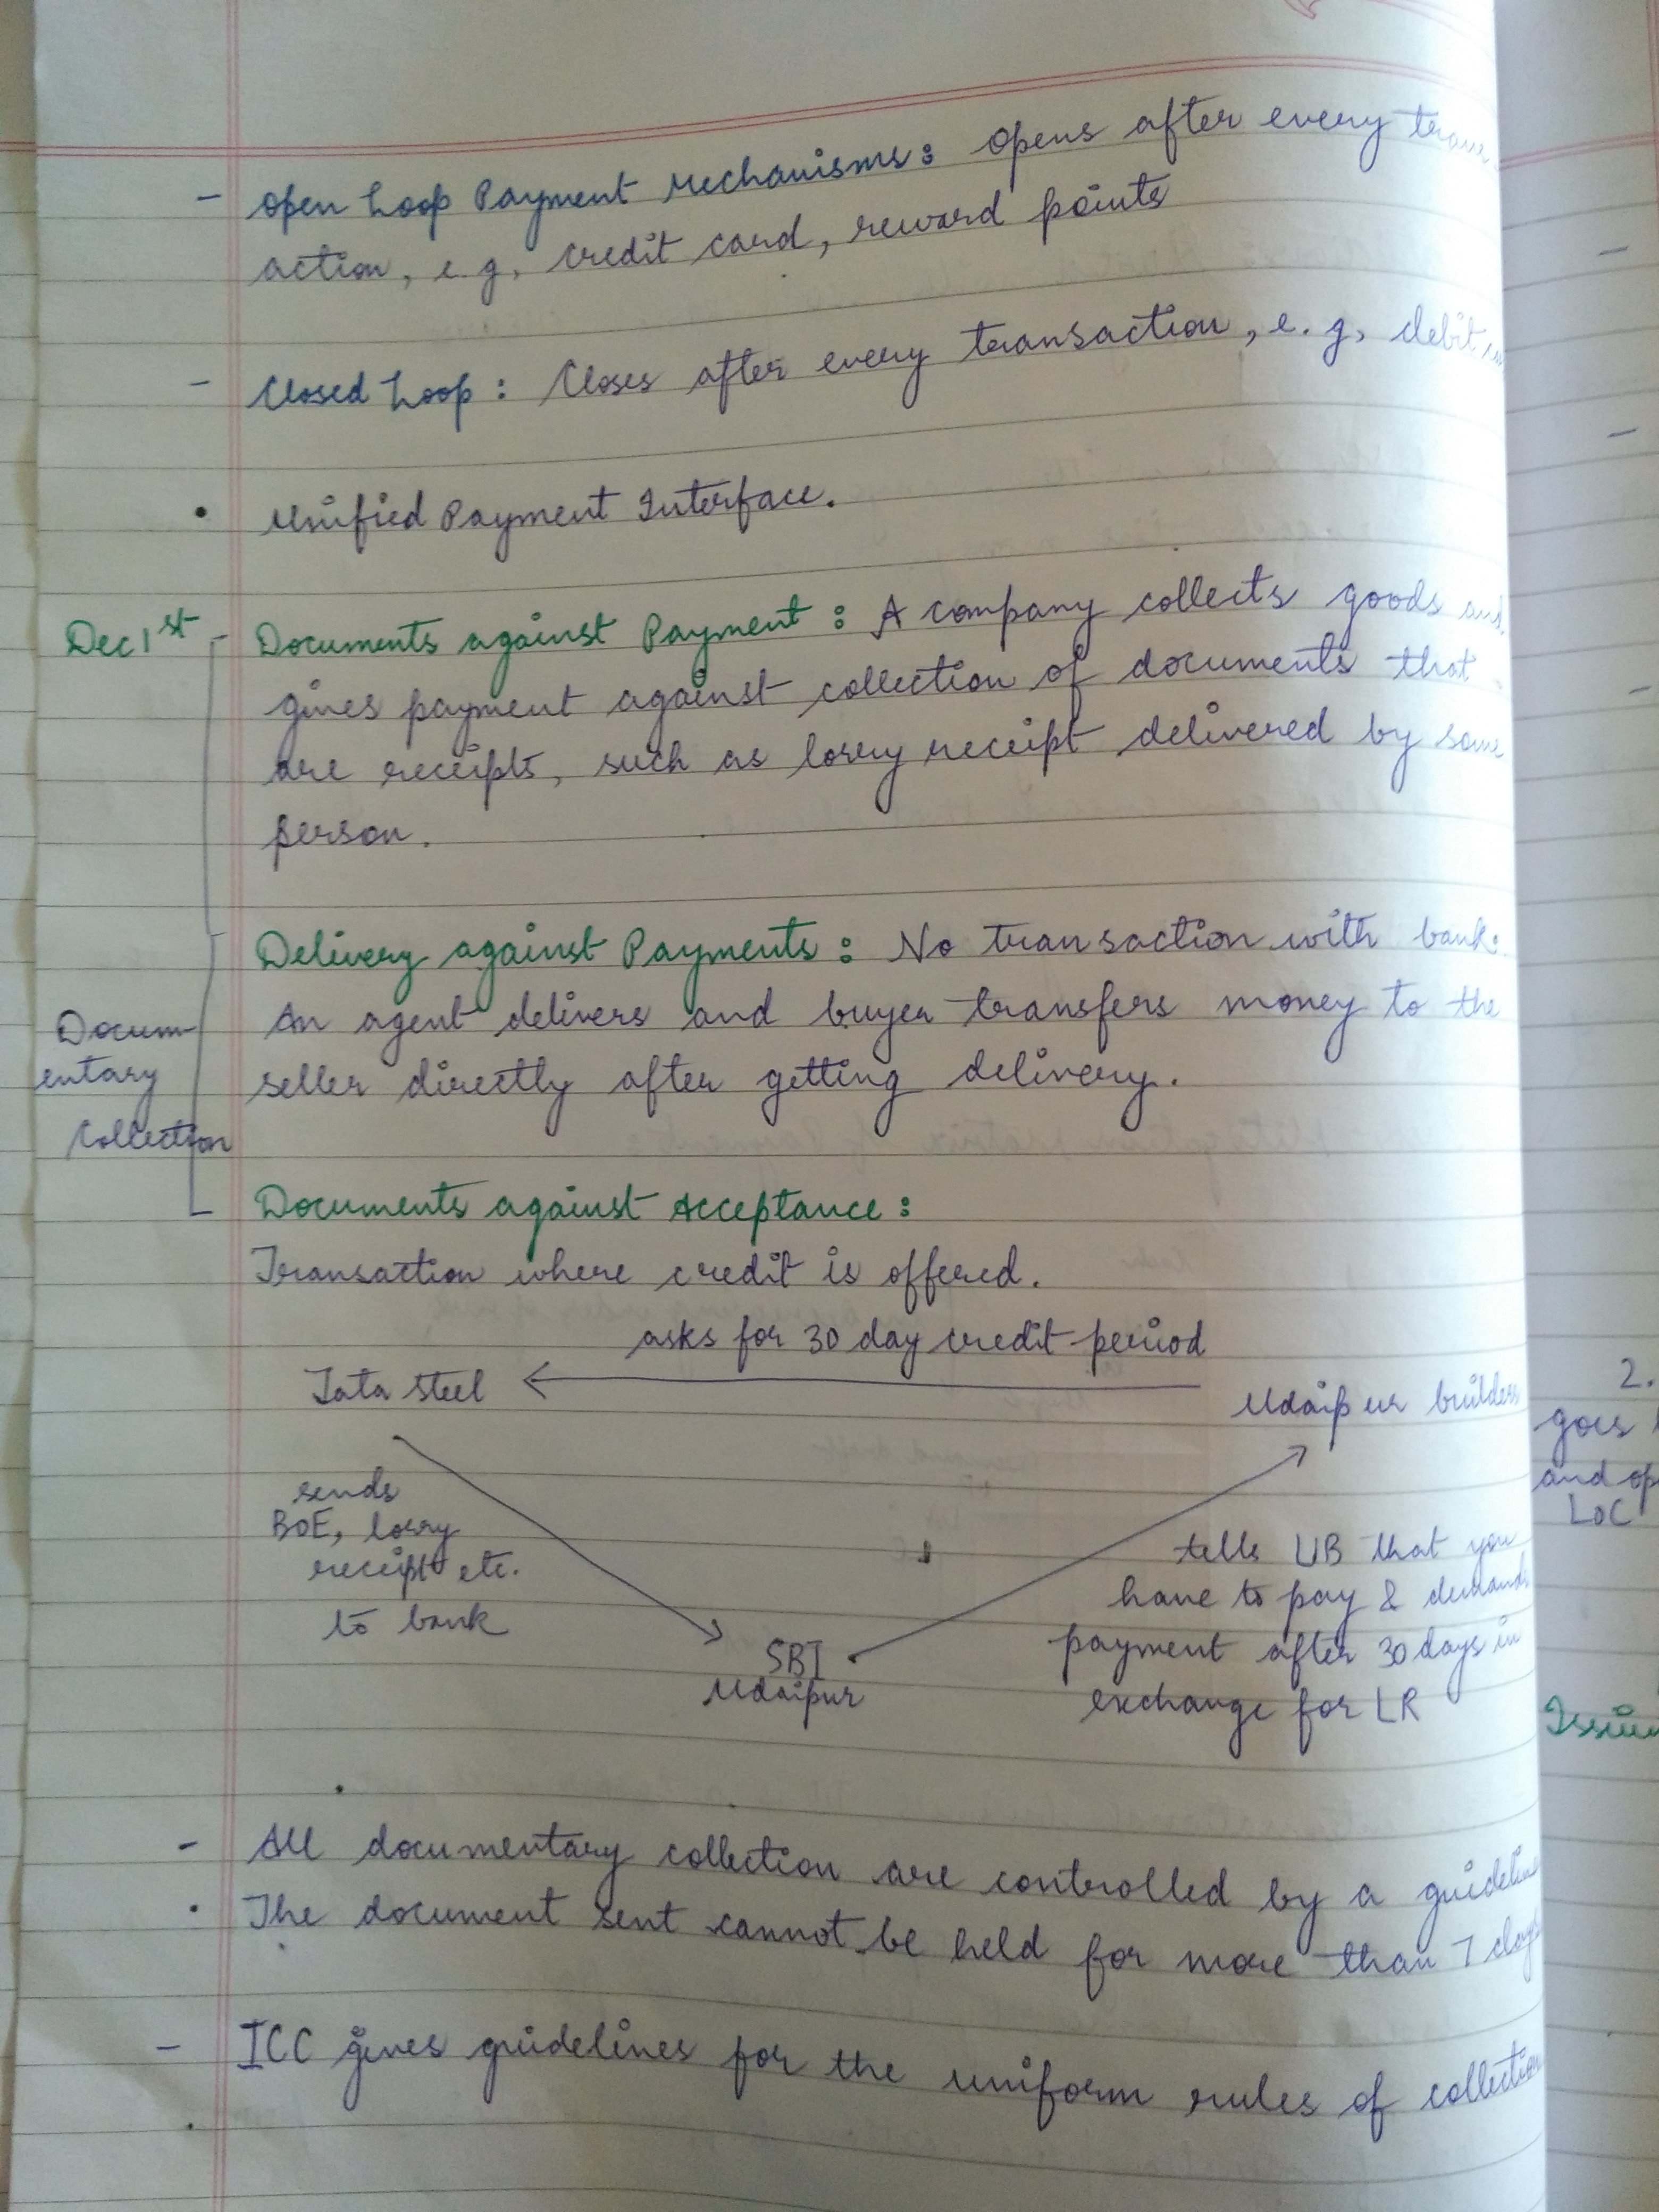 - Open Loop Payment Mechanisms: Opens after every trans
action, e.g, credit card, reward points
- Closed Loop: Closes after every transaction, e.g, debit
• Unified Payment Interface.
Dec 1st - Documents against Payment: A company collects goods and
gives payment against collection of documents that
are receipts, such as lorry receipt delivered by some
person.
Delivery against Payments: No transaction with bank.
An agent delivers and buyer transfers money to the
seller directly after getting delivery.
Docum-
entary
Collection
Documents against Acceptance:
Transaction where credit is offered.
asks for 30 day credit period
Tata Steel
Udaipur builders
sends
BoE, lorry
receipt etc.
to bank
SBI
Udaipur
tells UB that you
have to pay & demands
payment after 30 days in
exchange for LR
- All documentary collection are controlled by a guideline
• The document sent cannot be held for more than 7 days
- ICC gives guidelines for the uniform rules of collection
2.
goes
and op
LoC